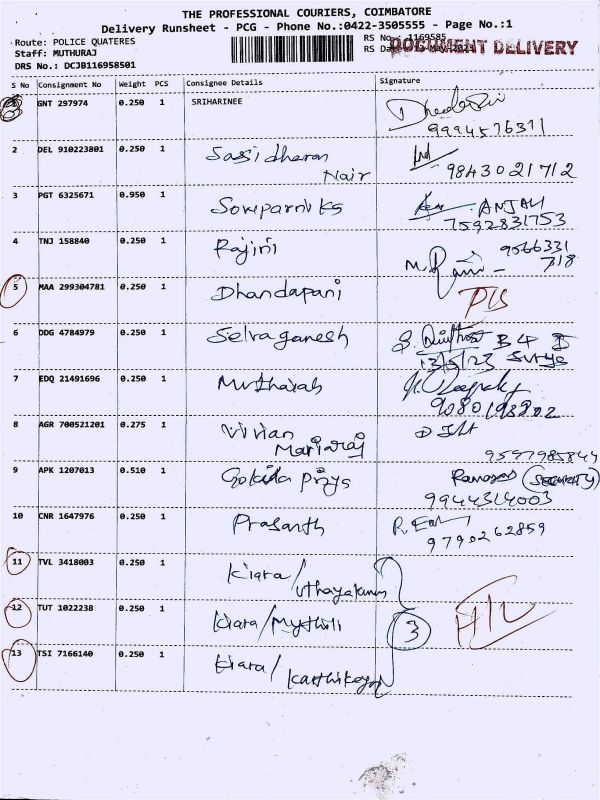 THE PROFESSIONAL COURIERS, COIMBATORE
Delivery Runsheet - PCG - Phone No.:0422-3505555 - Page No.:1
Route: POLICE QUATERES
Staff: MUTHURAJ
DRS No.: DCJB116958501
RS No. 1169585
RS Da 13 May 2023
DOCUMENT DELIVERY
S No Consignment No Weight PCS Consignee Details Signature
GNT 297974 0.250 1 SRIHARINEE
9994576311
2 DEL 910223801 0.250 1 Sasidharan
Nair 9843021712
3 PGT 6325671 0.950 1 Sowparnika ANJALI
7592831753
4 TNJ 158840 0.250 1 Rajini 9566331
718
5 MAA 299304781 0.250 1 Dhandapani
6 DDG 4784979 0.250 1 Selvaganesh
13/5/23 Surya
7 EDQ 21491696 0.250 1
9080198802
8 AGR 700521201 0.275 1 Vivian
Mariaraj 9597985844
9 APK 1207013 0.510 1 Gokila Priya (SECURITY)
9944314003
10 CNR 1647976 0.250 1 Prasanth
9790262859
11 TVL 3418003 0.250 1 Kiara/
Uthayakumar
12 TUT 1022238 0.250 1 Kiara/Mythili 3
13 TSI 7166140 0.250 1 Kiara/
Karthikeyan